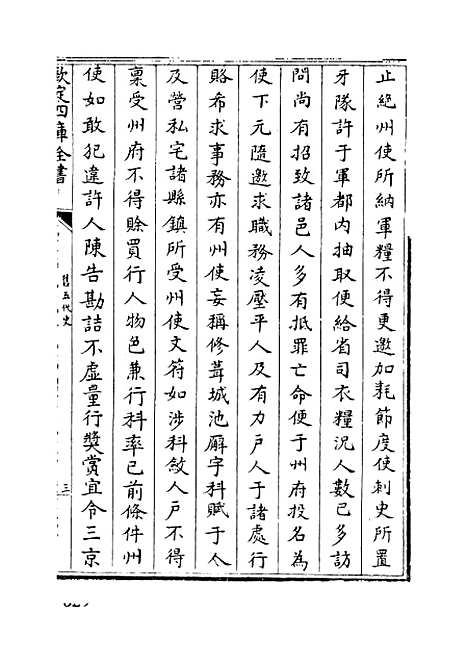 止絶州使所納軍糧不得更邀加耗節度使刺史所置
牙隊許于軍都内抽取便給省司衣糧況人數已多訪
問尚有招致諸邑人多有抵罪亡命便于州府投名為
使下元隨邀求職務凌壓平人及有力户人于諸處行
賂希求事務亦有州使妄稱修葺城池廨宇科賦于人
及營私宅諸縣鎮所受州使文符如涉科斂人户不得
稟受州府不得賒買行人物色兼行科率已前條件州
使如敢犯違許人陳告勘詰不虚量行獎賞宜令三京
欽定四庫全書
舊五代史
三